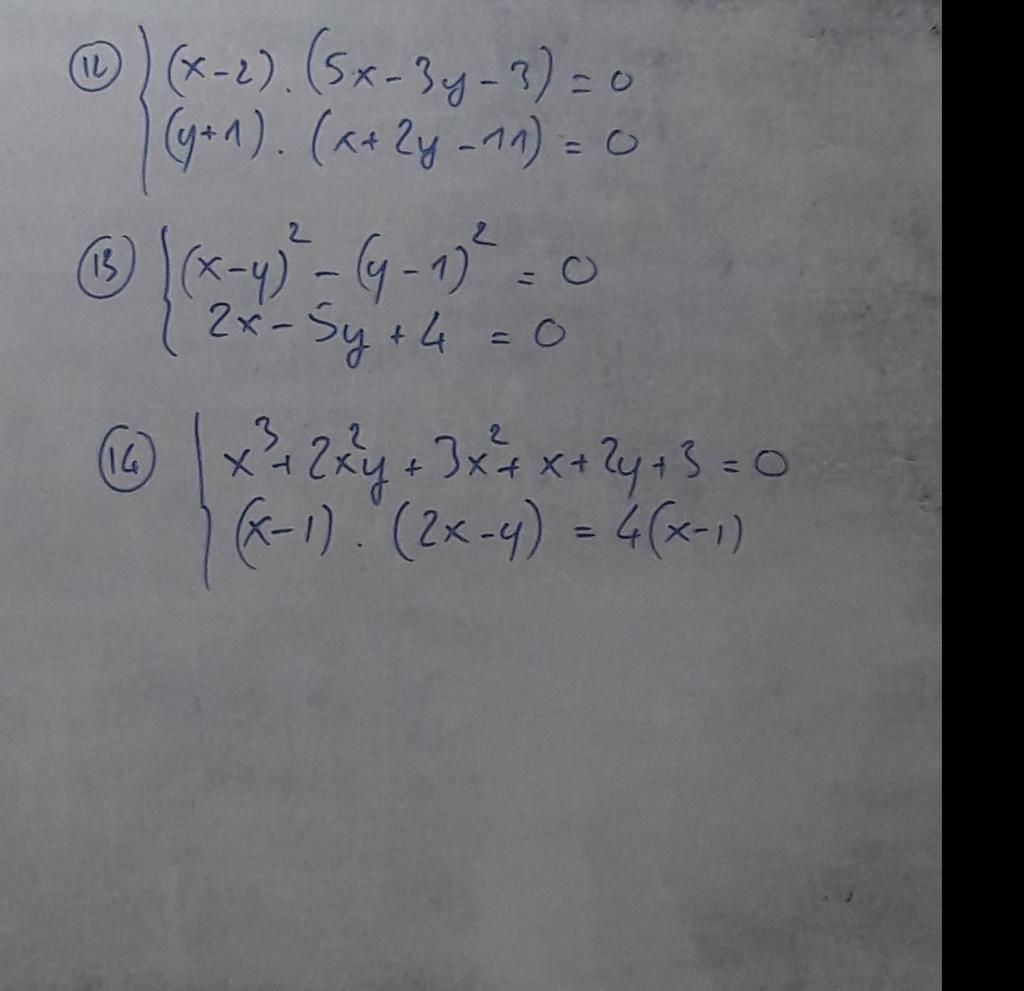 (12) { (x-2).(5x-3y-3) = 0
(y+1).(x+2y-11) = 0
(13) { (x-y)² - (y-1)² = 0
2x-5y+4 = 0
(14) { x³+2x²y+3x²+x+2y+3 = 0
(x-1).(2x-y) = 4(x-1)